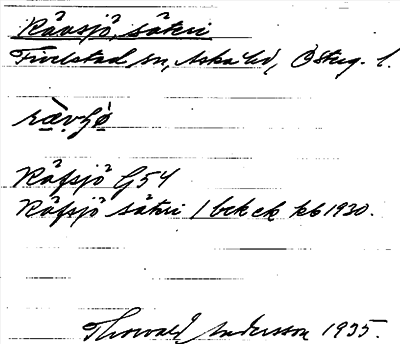 Rävsjö, säteri
Fivelstad sn, Aska hd, Östерg. l.
Räfsjö G54
Räfsjö säteri 1 bck ek kb 1930.
Thorvald Andersson 1935.